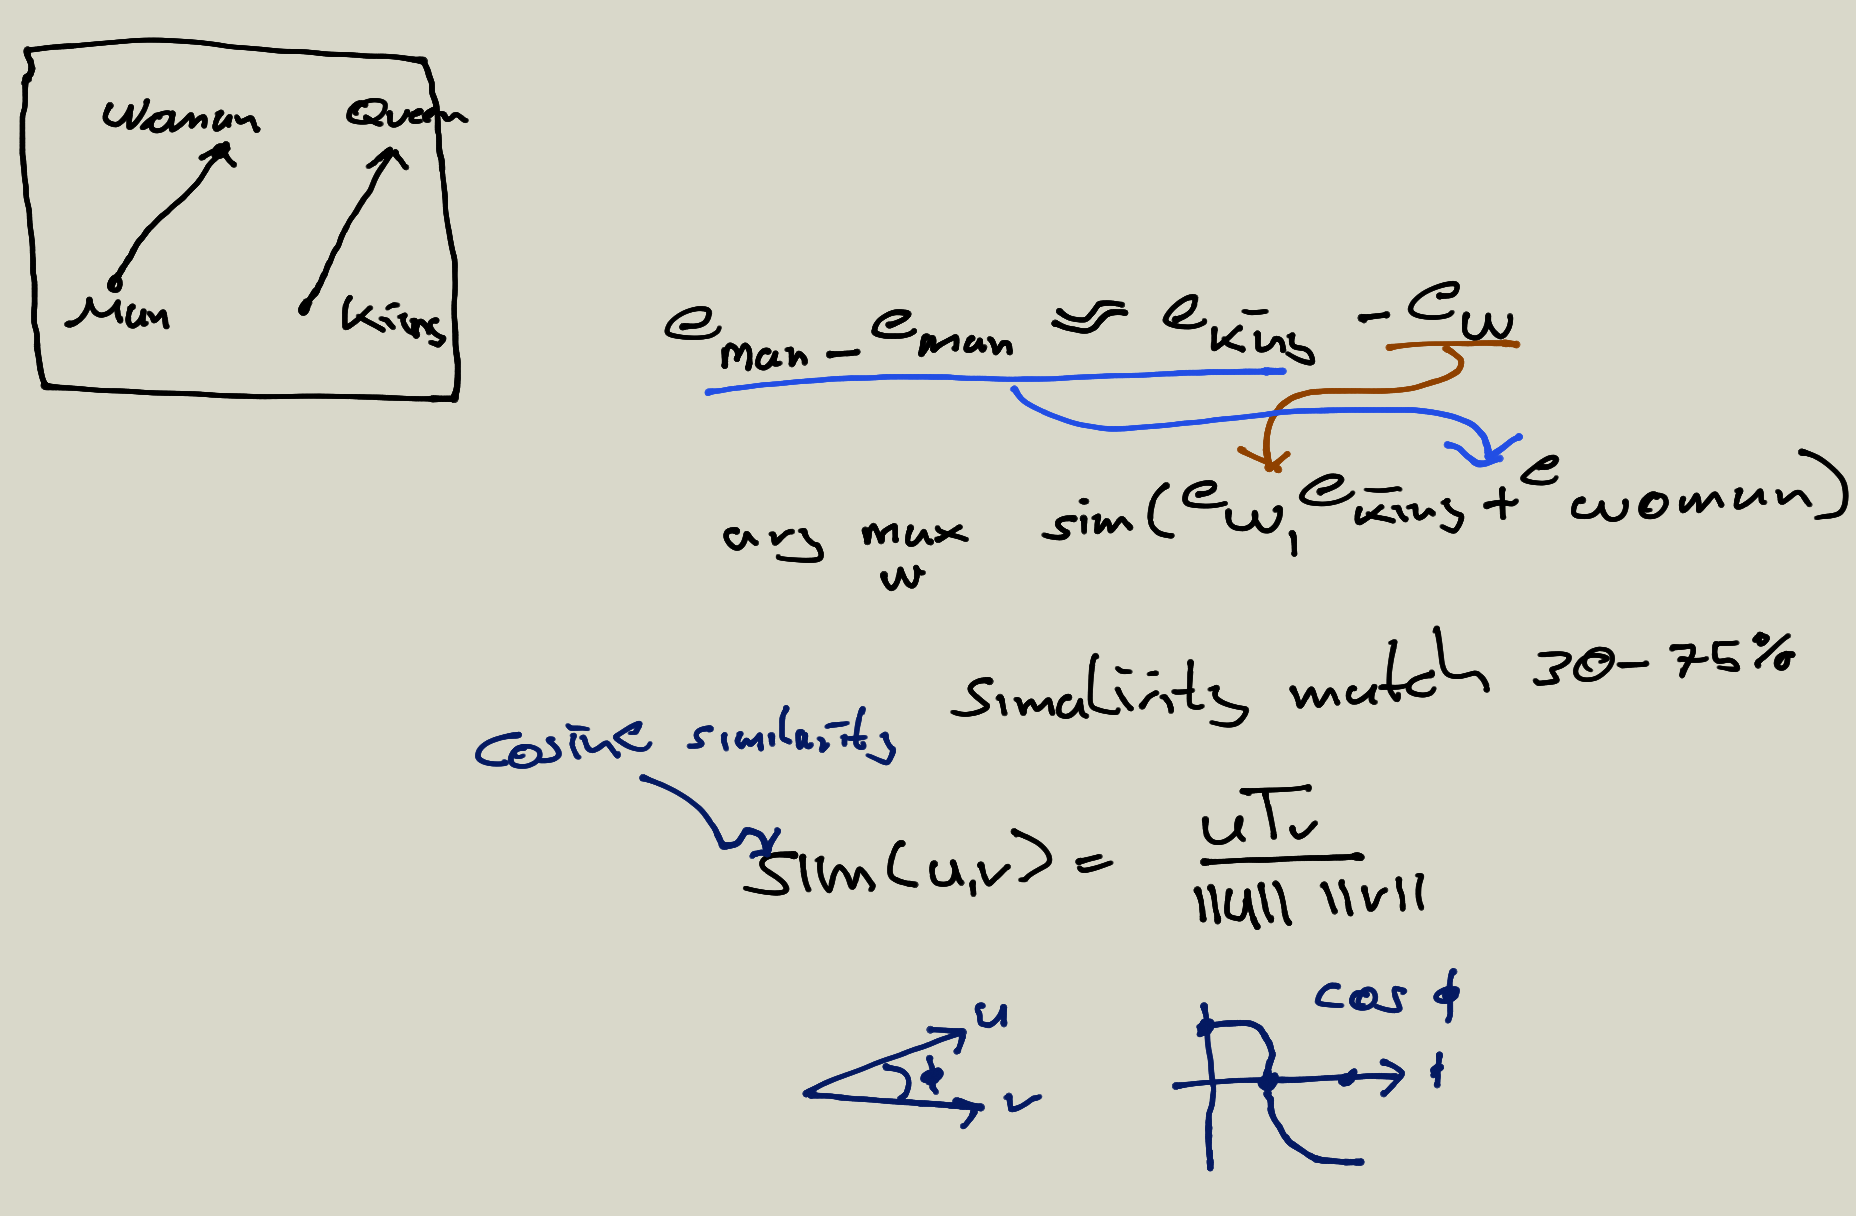 Woman Queen
Man King
e_man - e_man ≈ e_king - e_w
arg max_w sim(e_w, e_king + e_woman)
Simalirity match 30-75%
cosine similarity
sim(u,v) = u^T v / ||u|| ||v||
cos ϕ
u
ϕ
v